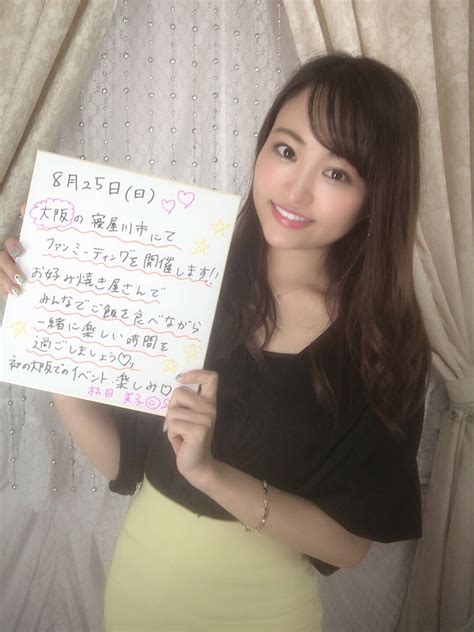 8月25日(日)
大阪の寝屋川市にて
ファンミーティングを開催します!!
お好み焼き屋さんで
みんなでご飯を食べながら
一緒に楽しい時間を
過ごしましょう♡!
初の大阪でのイベント楽しみ♡
松田 美子